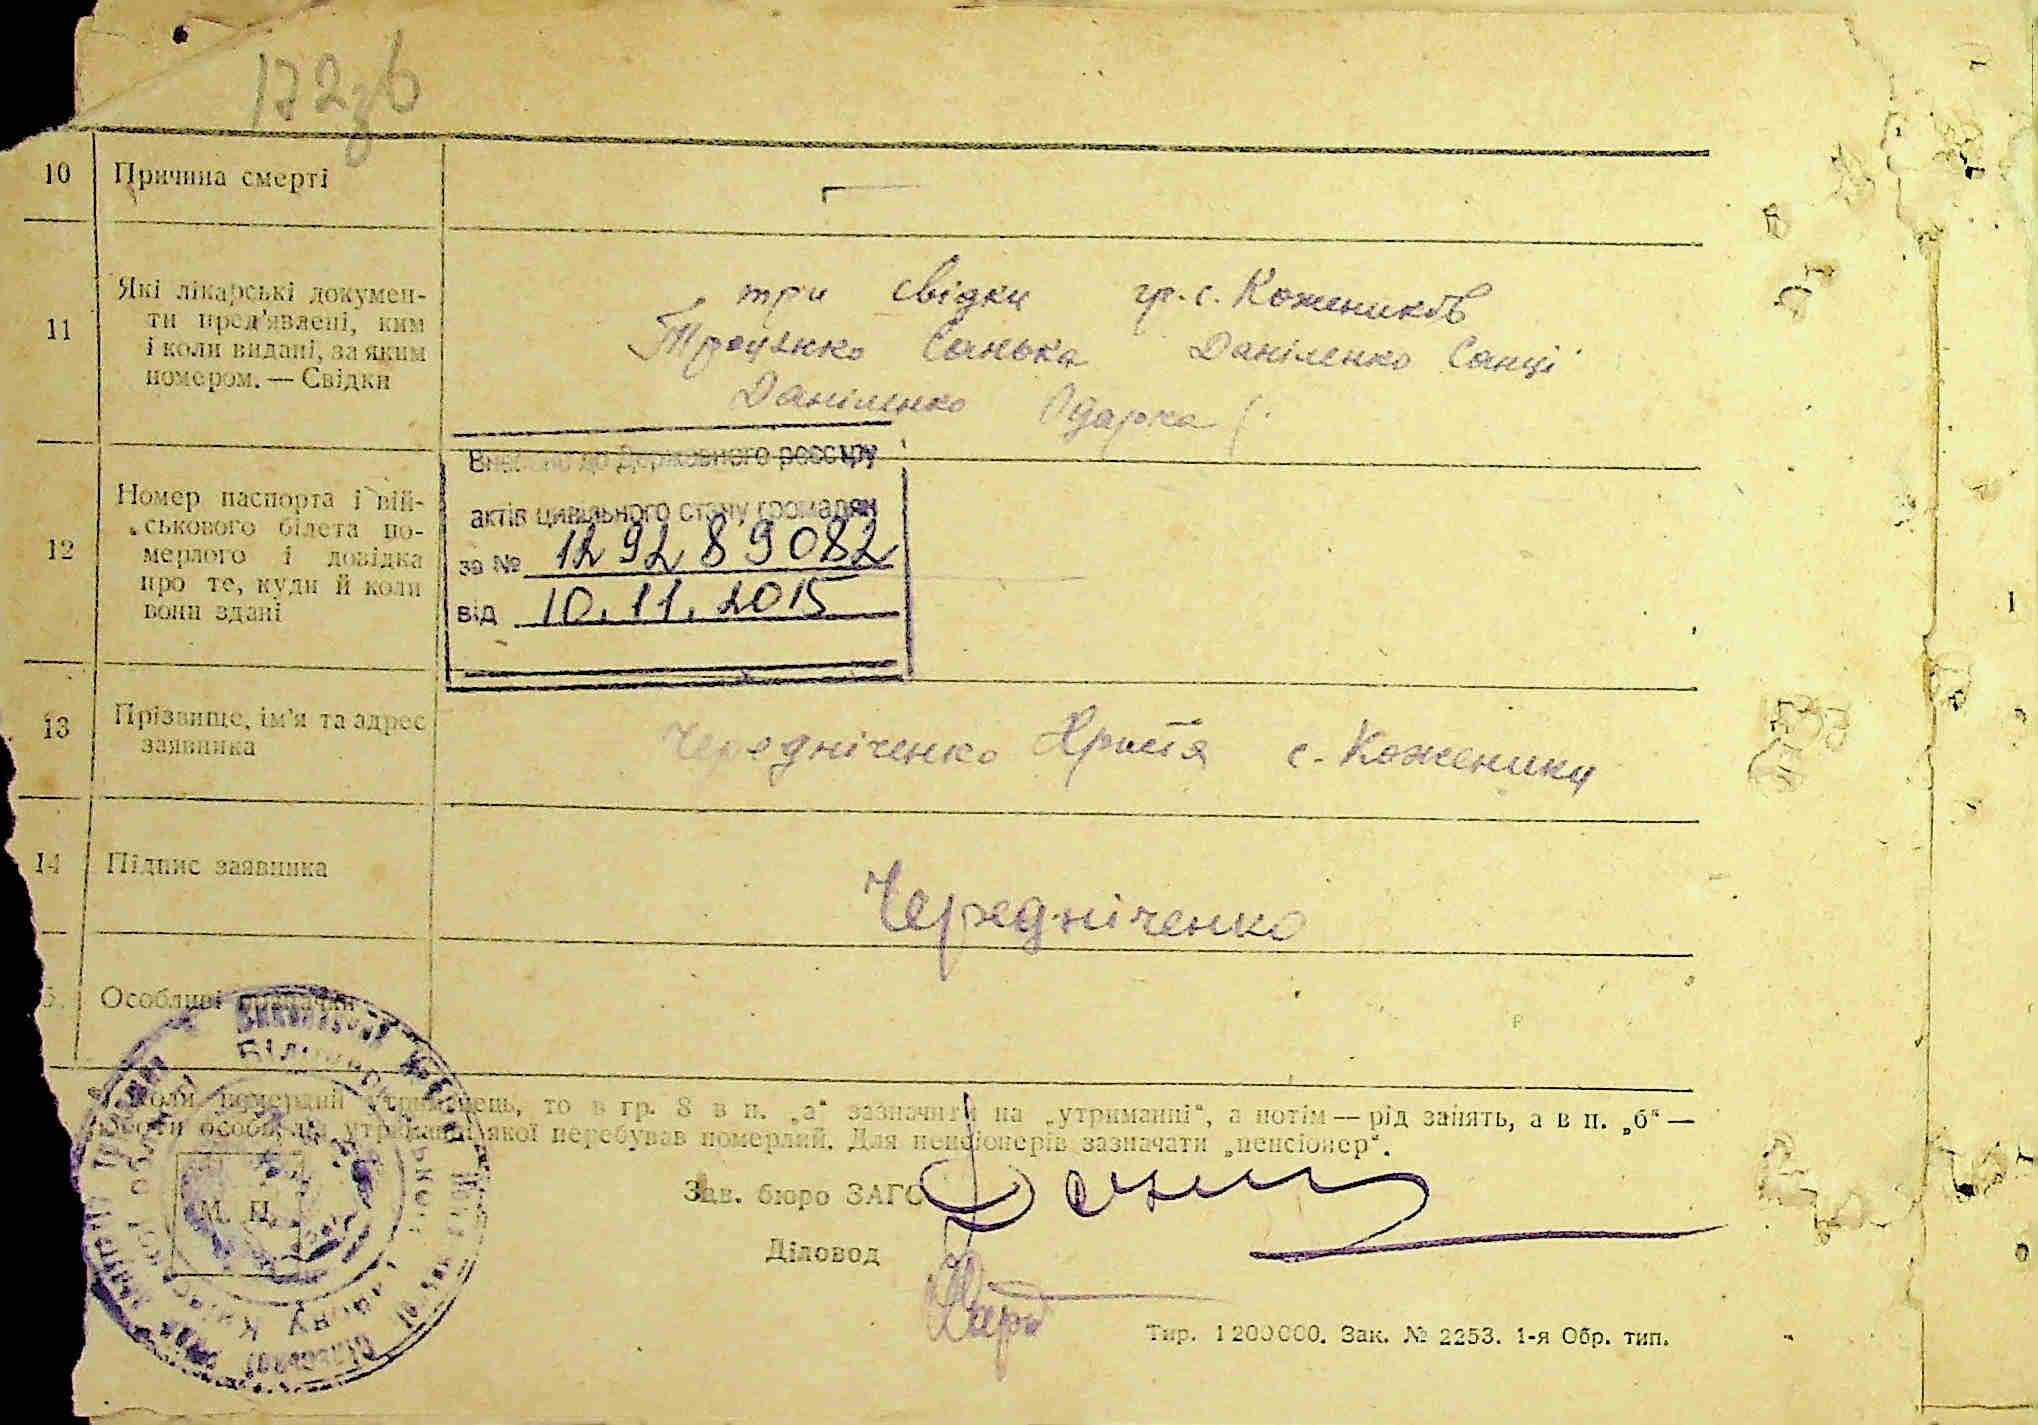 172зв
10 Причина смерті
11 Які лікарські докумен-
ти пред'явлені, ким
і коли видані, за яким
номером. — Свідки
три свідки гр. с. Кожеників
Троценко Санька Даніленко Санці
Даніленко Одарка
12 Номер паспорта і вій-
ськового білета по-
мерлого і довідка
про те, куди й коли
вони здані
Внесено до Державного реєстру
актів цивільного стану громадян
за № 1292 89082
від 10.11.2015
13 Прізвище, ім'я та адрес
заявника
Чередніченко Христя с. Коженики
14 Підпис заявника
Чередніченко
Особливі
Коли померлий утриманець, то в гр. 8 в п. „а“ зазначити на „утриманні“, а потім — рід занять, а в п. „б“ —
роботи особи, на утриманні якої перебував померлий. Для пенсіонерів зазначати „пенсіонер“.
М. П.
Зав. бюро ЗАГС
Діловод
Тир. 1200000. Зак. № 2253. 1-я Обр. тип.